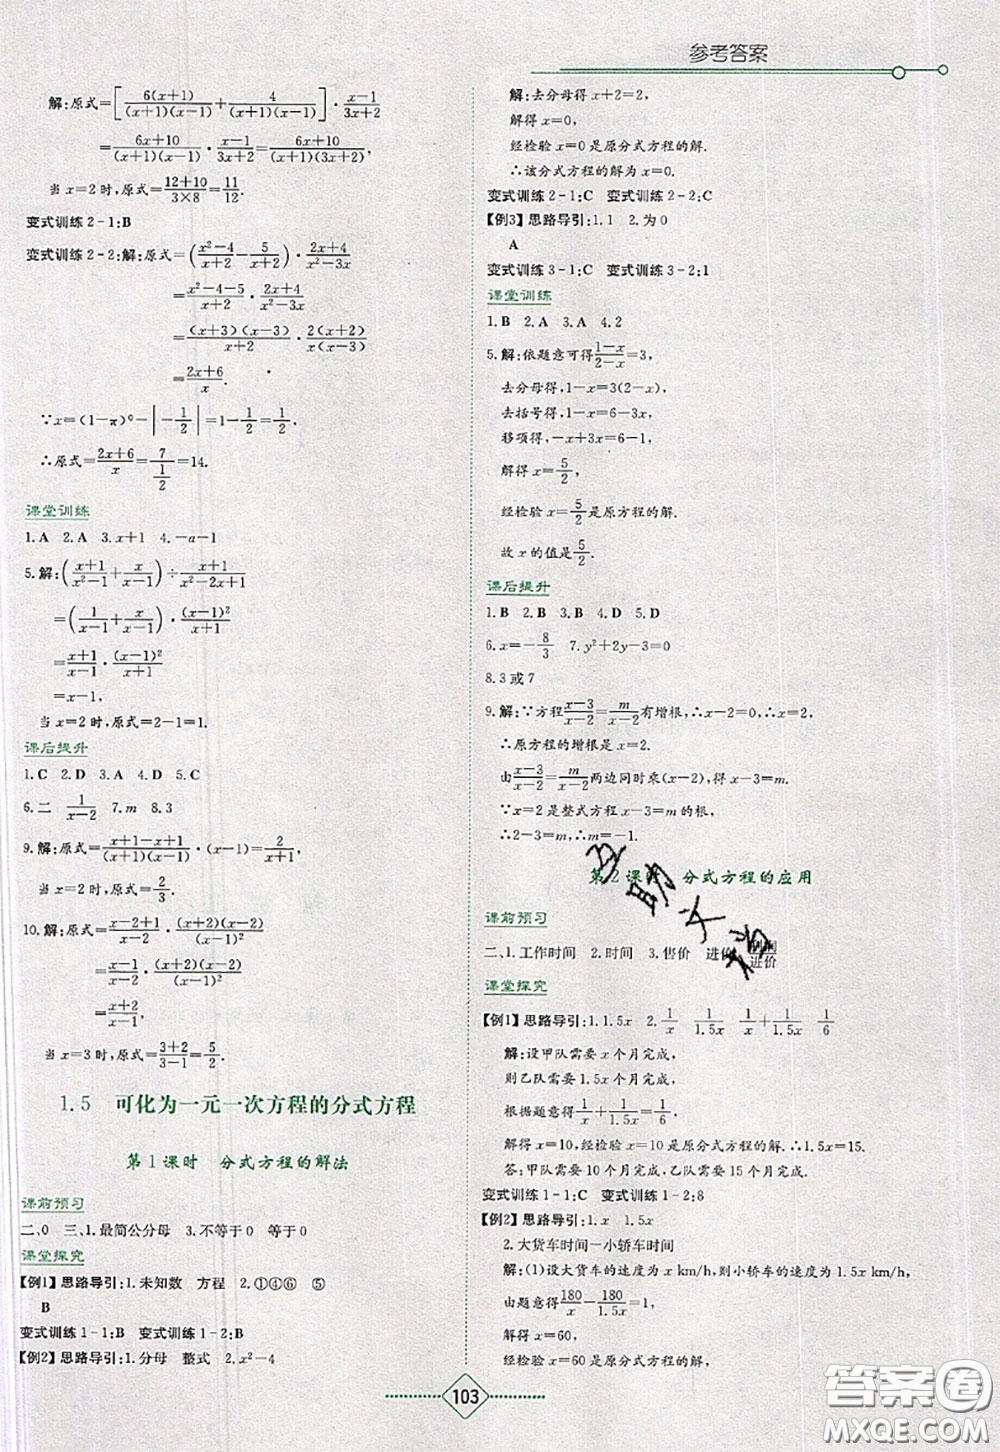 参考答案
解:原式=[6(x+1)/((x+1)(x-1))+4/((x+1)(x-1))]·(x-1)/(3x+2)
=(6x+10)/((x+1)(x-1))·(x-1)/(3x+2)=(6x+10)/((x+1)(3x+2)),
当 x=2时,原式=(12+10)/(3×8)=11/12.
变式训练2-1:B
变式训练2-2:解:原式=((x²-4)/(x+2)-5/(x+2))·(2x+4)/(x²-3x)
=(x²-4-5)/(x+2)·(2x+4)/(x²-3x)
=((x+3)(x-3))/(x+2)·(2(x+2))/(x(x-3))
=(2x+6)/x.
∵x=(1-π)⁰-|-1/2|=1-1/2=1/2,
∴原式=(2x+6)/x=7/(1/2)=14.
课堂训练
1.A 2.A 3.x+1 4.-a-1
5.解:((x+1)/(x²-1)+x/(x-1))÷(x+1)/(x²-2x+1)
=(1/(x-1)+x/(x-1))·(x-1)²/(x+1)
=(x+1)/(x-1)·(x-1)²/(x+1)
=x-1.
当 x=2时,原式=2-1=1.
课后提升
1.C 2.D 3.A 4.D 5.C
6.二 1/(x-2) 7.m 8.3
9.解:原式=(x+1-x+1)/((x+1)(x-1))·(x-1)/1=2/(x+1),
当 x=2时,原式=2/3.
10.解:原式=(x-2+1)/(x-2)÷(x-1)²/((x+2)(x-2))
=(x-1)/(x-2)·((x+2)(x-2))/(x-1)²
=(x+2)/(x-1).
当 x=3时,原式=(3+2)/(3-1)=5/2.
1.5 可化为一元一次方程的分式方程
第1课时 分式方程的解法
课前预习
二、0 三、1.最简公分母 3.不等于0 等于0
课堂探究
【例1】思路导引:1.未知数 方程 2.①④⑥ ⑤
B
变式训练1-1:B 变式训练1-2:B
【例2】思路导引:1.分母 整式 2.x²-4
解:去分母得 x+2=2,
解得 x=0,
经检验 x=0是原分式方程的解.
∴该分式方程的解为 x=0.
变式训练2-1:C 变式训练2-2:C
【例3】思路导引:1.1 2.为0
A
变式训练3-1:C 变式训练3-2:1
课堂训练
1.B 2.A 3.A 4.2
5.解:依题意可得(1-x)/(2-x)=3,
去分母得,1-x=3(2-x),
去括号得,1-x=6-3x,
移项得,-x+3x=6-1,
解得 x=5/2,
经检验 x=5/2是原方程的解.
故 x 的值是5/2.
课后提升
1.B 2.B 3.B 4.D 5.D
6.x=-8/3 7.y²+2y-3=0
8.3或7
9.解:∵方程(x-3)/(x-2)=m/(x-2)有增根,∴x-2=0,
∴原方程的增根是 x=2.
由(x-3)/(x-2)=m/(x-2)两边同时乘(x-2),得 x-3=m.
∵x=2是整式方程 x-3=m 的解,
∴2-3=m,∴m=-1.
第2课时 分式方程的应用
课前预习
二、1.工作时间 2.时间 3.售价 进价 利润/进价
课堂探究
【例1】思路导引:1.1.5x 2.1/x 1/1.5x 1/x+1/1.5x 1/6
解:设甲队需要 x 个月完成,
则乙队需要 1.5x 个月完成,
根据题意得1/x+1/1.5x=1/6,
解得 x=10,经检验 x=10是原分式方程的解.∴1.5x=15.
答:甲队需要10个月完成,乙队需要15个月完成.
变式训练1-1:C 变式训练1-2:8
【例2】思路导引:1.x 1.5x
2.大货车时间-小轿车时间
解:(1)设大货车的速度为 x km/h,则小轿车的速度为1.5x km/h,
由题意得180/x-180/1.5x=1,
解得 x=60,
经检验 x=60是原分式方程的解,
103
互助文档
答案圈
MXQE.COM